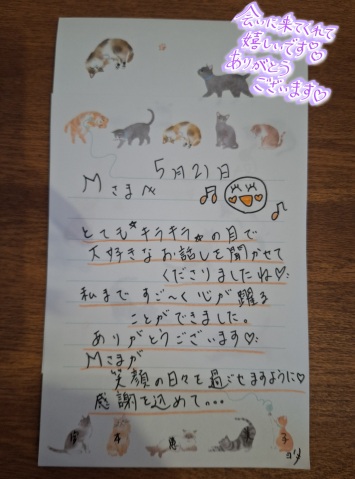 会いに来てくれて
嬉しいです♡
ありがとう
ございます♡
5月21日
Mさまへ
とても*キラキラ*の目で
大好きなお話しを聞かせて
くださりましたね♡
私まで すご〜く心が躍る
ことができました。
ありがとうございます♡
Mさまが
笑顔の日々を過ごせますように♡
感謝を込めて...